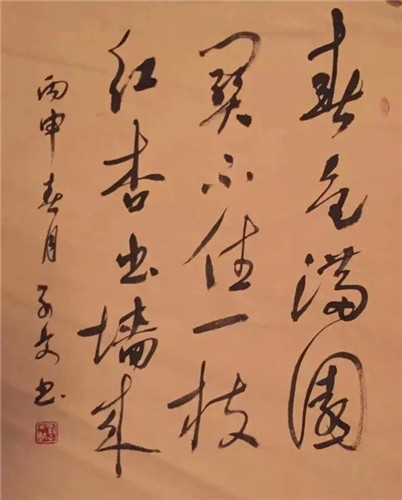 春色满園
關不住一枝
红杏出墙来
丙申春月子文书